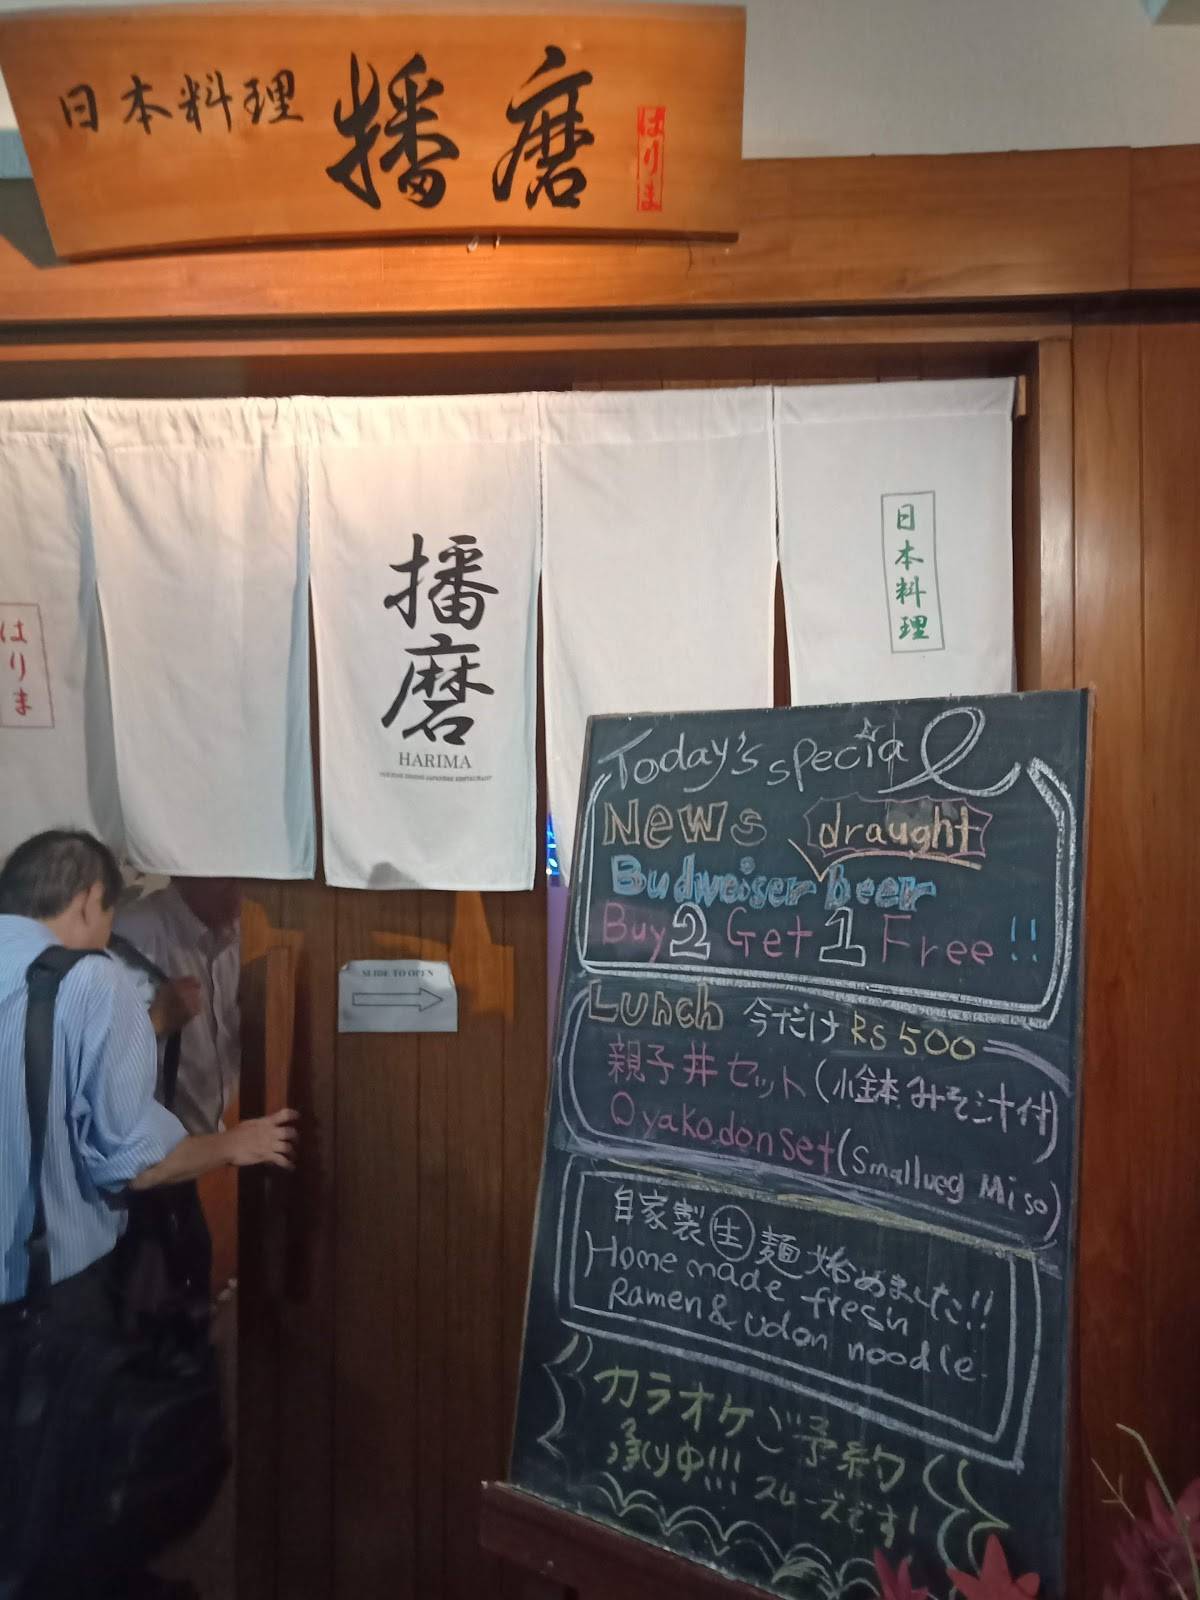 日本料理 播磨 はりま
はりま
播磨
HARIMA
日本料理
SLIDE TO OPEN
Today's special
News draught
Budweiser beer
Buy 2 Get 1 Free !!
Lunch 今だけ RS 500
親子丼セット(小鉢みそ汁付)
Oyakodon set (Small veg Miso)
自家製 生 麺 始めました!!
Home made fresh
Ramen & udon noodle
カラオケご予約
承り中!!! スムーズです!